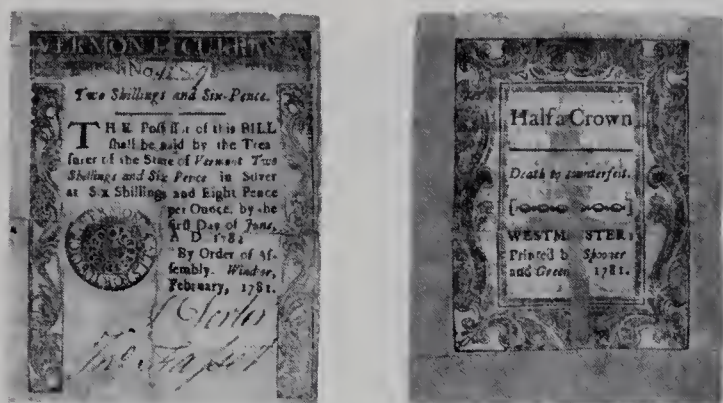 VERMONT CURRENCY
No 4259
Two Shillings and Six-Pence.
THE Possessor of this BILL
shall be paid by the Trea
surer of the State of Vermont Two
Shillings and Six Pence in Silver
at Six Shillings and Eight Pence
per Ounce, by the
first Day of June,
A D 1782
By Order of As-
sembly. Windsor,
February, 1781.
VERMON
Half a Crown
Death to counterfeit.
WESTMINSTER:
Printed by Spooner
and Green 1781.